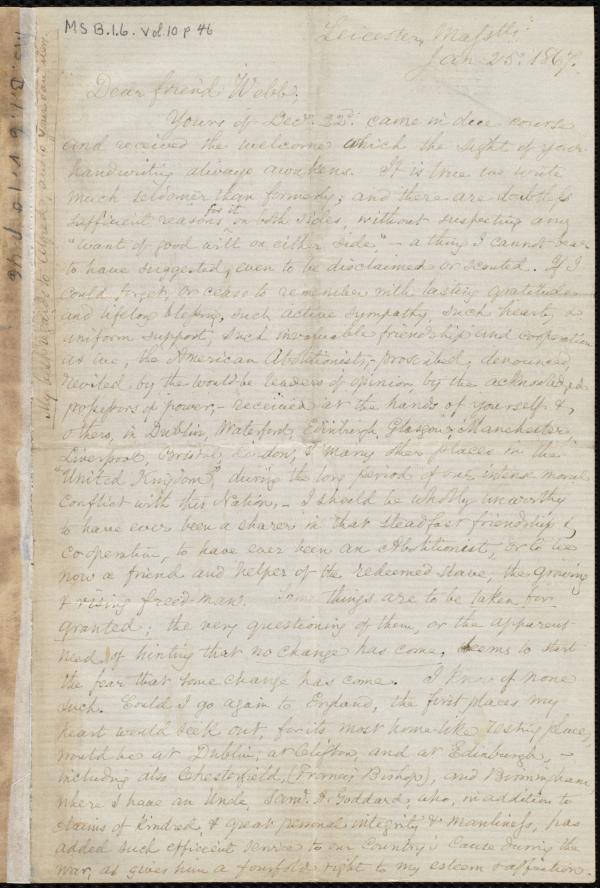 MS B.1.6. Vol.10 p 46
Leicester, Massts.
Jan 25. 1867.
Dear friend Webb,
Yours of Decr. 22d. came in due course
and received the welcome which the sight of your
handwriting always awakens. It is true we write
much seldomer than formerly; and there are doubtless
sufficient reasons for it on both sides, without suspecting any
"want of good will on either side" – a thing I cannot bear
to have suggested, even to be disclaimed or scouted. If I
could forget, or cease to remember with lasting gratitude
and lifelong blessing, such active sympathy, such hearty &
uniform support, such invaluable friendship and cooperation
as we, the American Abolitionists, – proscribed, denounced,
reviled, by the would-be leaders of opinion, by the acknowledged
possessors of power, – received at the hands of yourself &
others, in Dublin, Waterford, Edinburgh, Glasgow, Manchester,
Liverpool, Bristol, London, & many other places in the
"United Kingdom", during the long period of our intense moral
conflict with this Nation, – I should be wholly unworthy
to have ever been a sharer in that steadfast friendship &
co-operation, to have ever been an Abolitionist, or to be
now a friend and helper of the redeemed slave, the growing
& rising freed-man. Some things are to be taken for
granted; the very questioning of them, or the apparent
need of hinting that no change has come, seems to start
the fear that some change has come. I know of none
such. Could I go again to England, the first places my
heart would seek out, for its most home-like resting place,
would be at Dublin, at Clifton, and at Edinburgh, –
including also Chesterfield, (Francis Bishop), and Birmingham,
where I have an Uncle, Saml. A. Goddard, who, in addition to
claims of kindred, & great personal integrity & manliness, has
added such efficient service to our Country's Cause during the
war, as gives him a fourfold right to my esteem & affection.
Ms. B.1.6 v.10 p.46